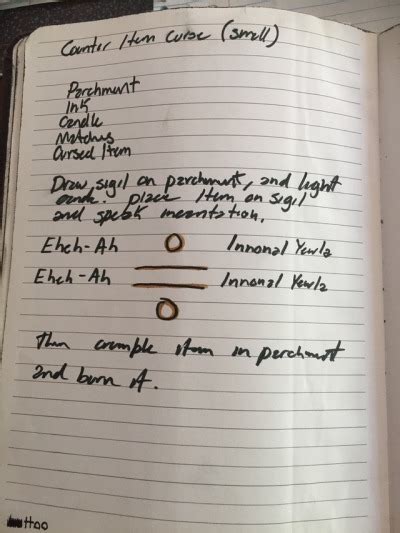 Counter Item Curse (small)
Parchment
Ink
Candle
Matches
Cursed Item
Draw sigil on parchment, and light
candle. place item on sigil
and speak incantation.
Eheh-Ah Innonal Yewla
Eheh-Ah Innonal Yewla
Then crumple item in parchment
and burn it.